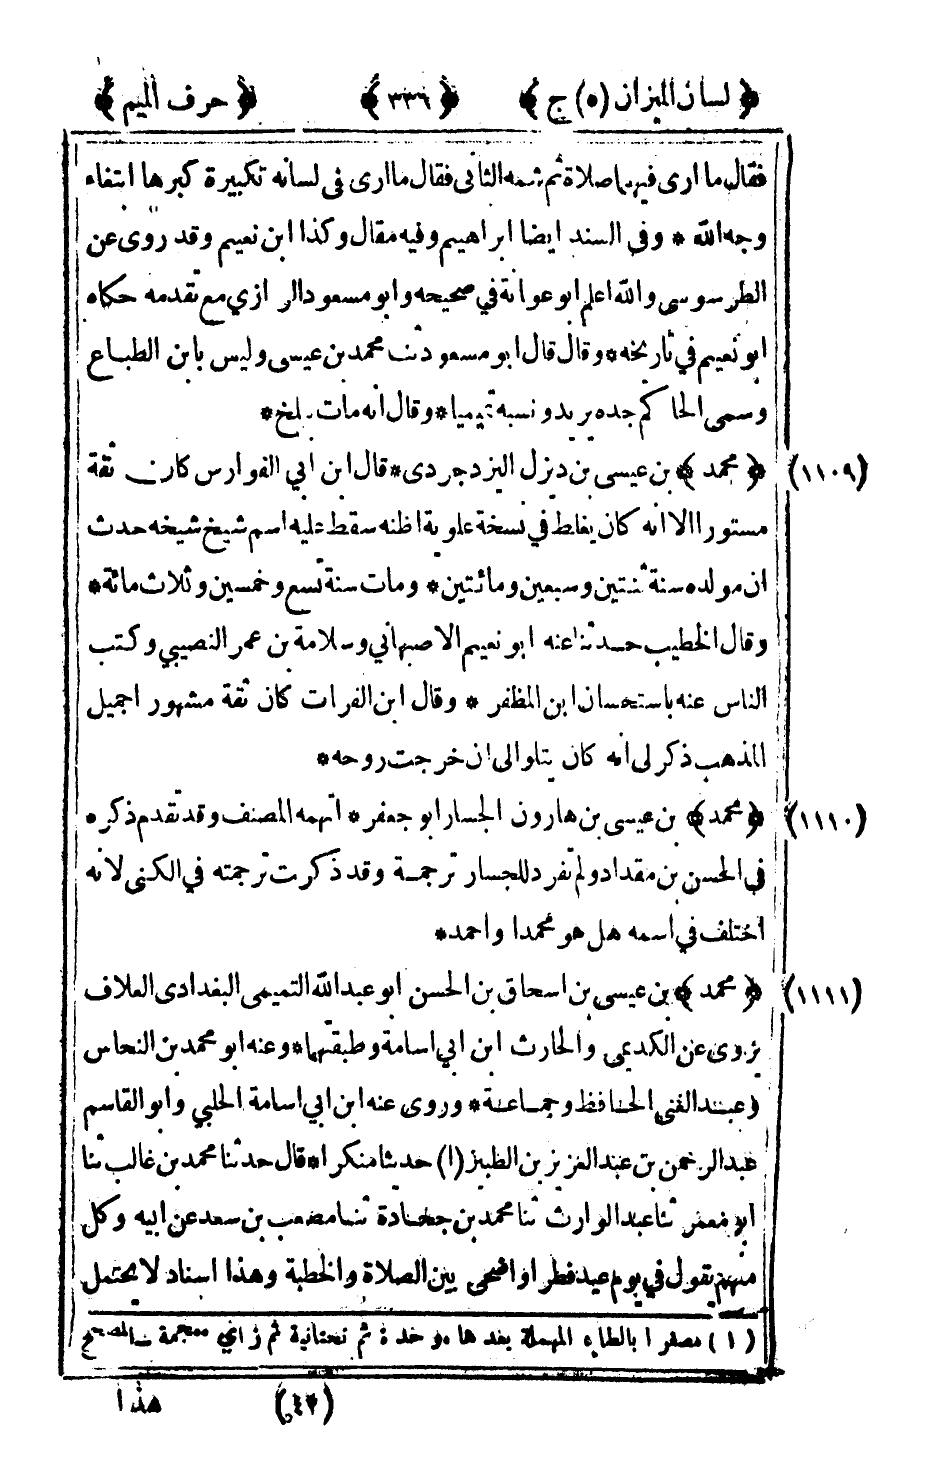 ﴿ لسان الميزان (٥) ج ﴾ ﴿ ٣٣٦ ﴾ ﴿ حرف الميم ﴾
فقال ما ارى فيها صلاة ثم شمه الثانى فقال ما ارى فى لسانه تكبيرة كبرها ابتغاء
وجه الله * وفى السند ايضا ابراهيم وفيه مقال وكذا ابن نعيم وقد روى عن
الطرسوسى والله اعلم ابو عوانة في صحيحه وابو مسعود الرازي مع تقدمه حكاه
ابو نعيم في تاريخه * وقال قال ابو مسعود ثنا محمد بن عيسى وليس بابن الطباع
وسمى الحاكم جده يزيد ونسبه تميميا * وقال انه مات ببلخ *
(١١٠٩) ﴿ محمد ﴾ بن عيسى بن ديزل اليزدجردى * قال ابن ابي الفوارس كان ثقة
مستورا الا انه كان يغلط في نسخة علوية اظنه سقط عليه اسم شيخ شيخه حدث
ان مولده سنة ثنتين وسبعين ومائتين * ومات سنة تسع وخمسين وثلاث مائة *
وقال الخطيب حدثنا عنه ابو نعيم الاصبهاني وسلامة بن عمر النصيبي وكتب
الناس عنه باستحسان ابن المظفر * وقال ابن الفرات كان ثقة مشهورا جميل
المذهب ذكر لى انه كان يتلوا لى ان خرجت روحه *
(١١١٠) ﴿ محمد ﴾ بن عيسى بن هارون الجسار ابو جعفر * اتهمه المصنف وقد تقدم ذكره
في الحسن بن مقداد ولم تفرد للجسار ترجمة وقد ذكرت ترجمته في الكنى لانه
اختلف في اسمه هل هو محمد او احمد *
(١١١١) ﴿ محمد ﴾ بن عيسى بن اسحاق بن الحسن ابو عبد الله التميمى البغدادى العلاف
يروى عن الكديمى والحارث ابن ابي اسامة وطبقتهما * وعنه ابو محمد بن النحاس
وعبد الغني الحافظ وجماعة * وروى عنه ابن ابي اسامة الحلبي وابو القاسم
عبد الرحمن بن عبد العزيز بن الطبيز (١) حديثا منكرا * قال حدثنا محمد بن غالب ثنا
ابو معمر ثنا عبد الوارث ثنا محمد بن جحادة ثنا مصعب بن سعد عن ابيه وكل
منهم يقول في يوم عيد فطر او اضحى بين الصلاة والخطبة وهذا اسناد لا يحتمل
(١) مصغرا بالطاء المهملة بعدها موحدة ثم تحتانية ثم زاي معجمة ـ المصحح
(٤٢) هذا